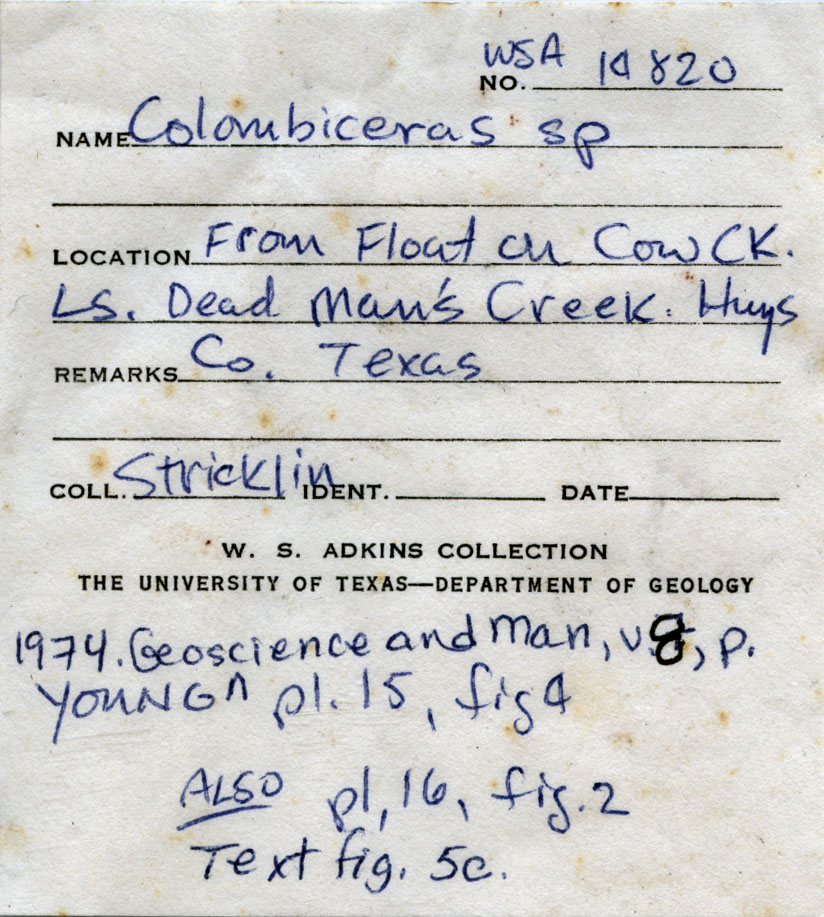 WSA
NO. 14820
NAME Colombiceras sp
LOCATION From Float on Cow CK.
Ls. Dead Man's Creek. Hays
REMARKS Co. Texas
COLL. Stricklin IDENT. DATE
W. S. ADKINS COLLECTION
THE UNIVERSITY OF TEXAS—DEPARTMENT OF GEOLOGY
1974. Geoscience and Man, v. 8, p.
YOUNG ^ pl. 15, fig 4
ALSO pl, 16, fig. 2
Text fig. 5c.